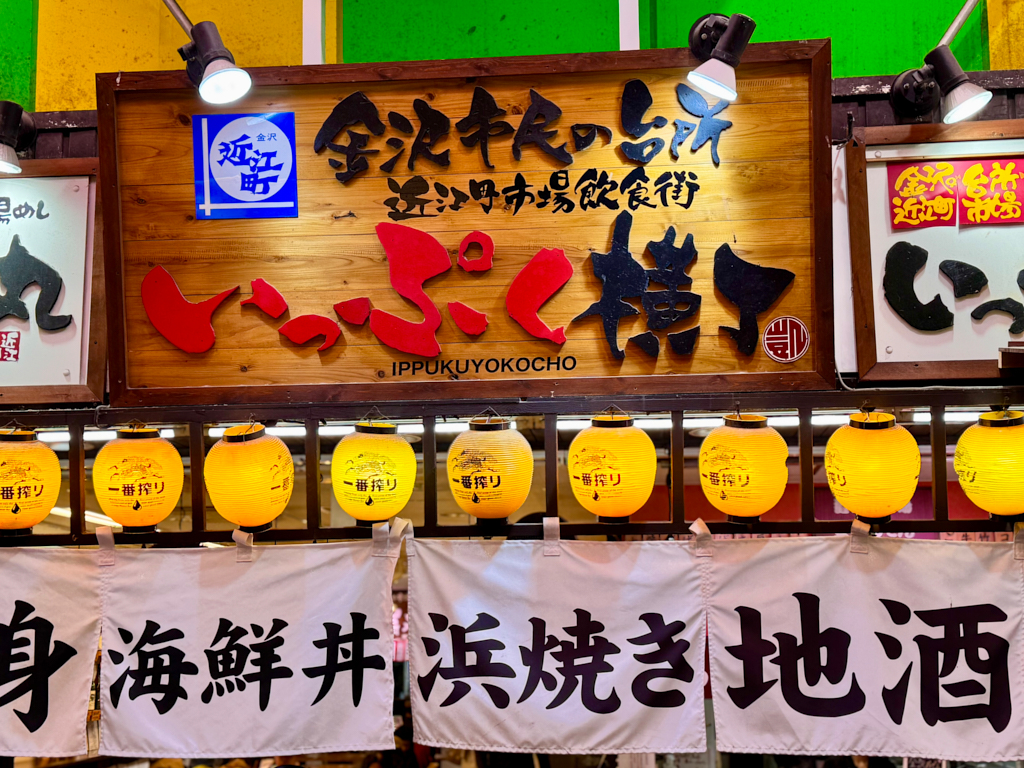 金沢市民の台所
金沢
近江町
近江町市場飲食街
いっぷく横丁
IPPUKUYOKOCHO
場めし
近江
金沢の台所
近江町市場
いっ
一番搾り
一番搾り
一番搾り
一番搾り
一番搾り
一番搾り
身
海鮮丼
浜焼き
地酒